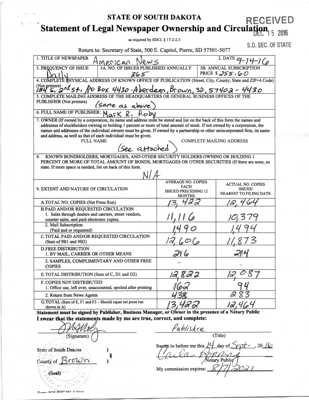 STATE OF SOUTH DAKOTA
Statement of Legal Newspaper Ownership and Circulation
RECEIVED
DEC 15 2016
S.D. SEC. OF STATE
as required by SDCL § 17-2-2.3
Return to: Secretary of State, 500 E. Capitol, Pierre, SD 57501-5077
1. TITLE OF NEWSPAPER American News 2. DATE 9-14-16
3. FREQUENCY OF ISSUE Daily 3A. NO. OF ISSUES PUBLISHED ANNUALLY 365 3B. ANNUAL SUBSCRIPTION PRICE $ 255.60
4. COMPLETE PHYSICAL ADDRESS OF KNOWN OFFICE OF PUBLICATION (Street, City, County, State and ZIP+4 Code)
124 S. 2nd St. PO Box 4430 - Aberdeen, Brown, SD, 57402-4430
5. COMPLETE MAILING ADDRESS OF THE HEADQUARTERS OR GENERAL BUSINESS OFFICES OF THE
PUBLISHER (Not printers) (same as above)
6. FULL NAME OF PUBLISHER: Mark R. Roby
7. OWNER (If owned by a corporation, its name and address must be stated and list on the back of this form the names and
addresses of stockholders owning or holding 1 percent or more of total amount of stock. If not owned by a corporation, the
names and addresses of the individual owners must be given. If owned by a partnership or other unincorporated firm, its name
and address, as well as that of each individual must be given.
FULL NAME COMPLETE MAILING ADDRESS
(see attached)
8. KNOWN BONDHOLDERS, MORTGAGES, AND OTHER SECURITY HOLDERS OWNING OR HOLDING 1
PERCENT OR MORE OF TOTAL AMOUNT OF BONDS, MORTGAGES OR OTHER SECURITIES (If there are none, so
state. If more space is needed, list on back of this form.
N/A
9. EXTENT AND NATURE OF CIRCULATION
AVERAGE NO. COPIES EACH ISSUED PRECEDING 12 MONTHS
ACTUAL NO. COPIES ISSUED NEAREST TO FILING DATE
A. TOTAL NO. COPIES (Net Press Run) 13,422 12,464
B. PAID AND/OR REQUESTED CIRCULATION
1. Sales through dealers and carriers, street vendors,
counter sales, and paid electronic copies. 11,116 10,379
2. Mail Subscription
(Paid and or requested) 1490 1494
C. TOTAL PAID AND/OR REQUESTED CIRCULATION
(Sum of 9B1 and 9B2) 12,606 11,873
D. FREE DISTRIBUTION
1. BY MAIL, CARRIER OR OTHER MEANS 216 214
2. SAMPLES, COMPLIMENTARY AND OTHER FREE
COPIES
E. TOTAL DISTRIBUTION (Sum of C, D1 and D2) 12,822 12,087
F. COPIES NOT DISTRIBUTED
1. Office use, left over, unaccounted, spoiled after printing 162 94
2. Return from News Agents 438 283
G. TOTAL (Sum of E, F1 and F2 - Should equal net press run
shown in A) 13,422 12,464
Statement must be signed by Publisher, Business Manager, or Owner in the presence of a Notary Public
I swear that the statements made by me are true, correct, and complete:
Publisher
(Signature) (Title)
State of South Dakota
County of Brown
(Seal)
Sworn to before me this 14 day of Sept., 2016
Notary Public
My commission expires: 8/7/2021